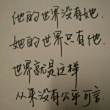 他的世界没有她
她的世界只有他
世界就是这样
从来没有公平可言